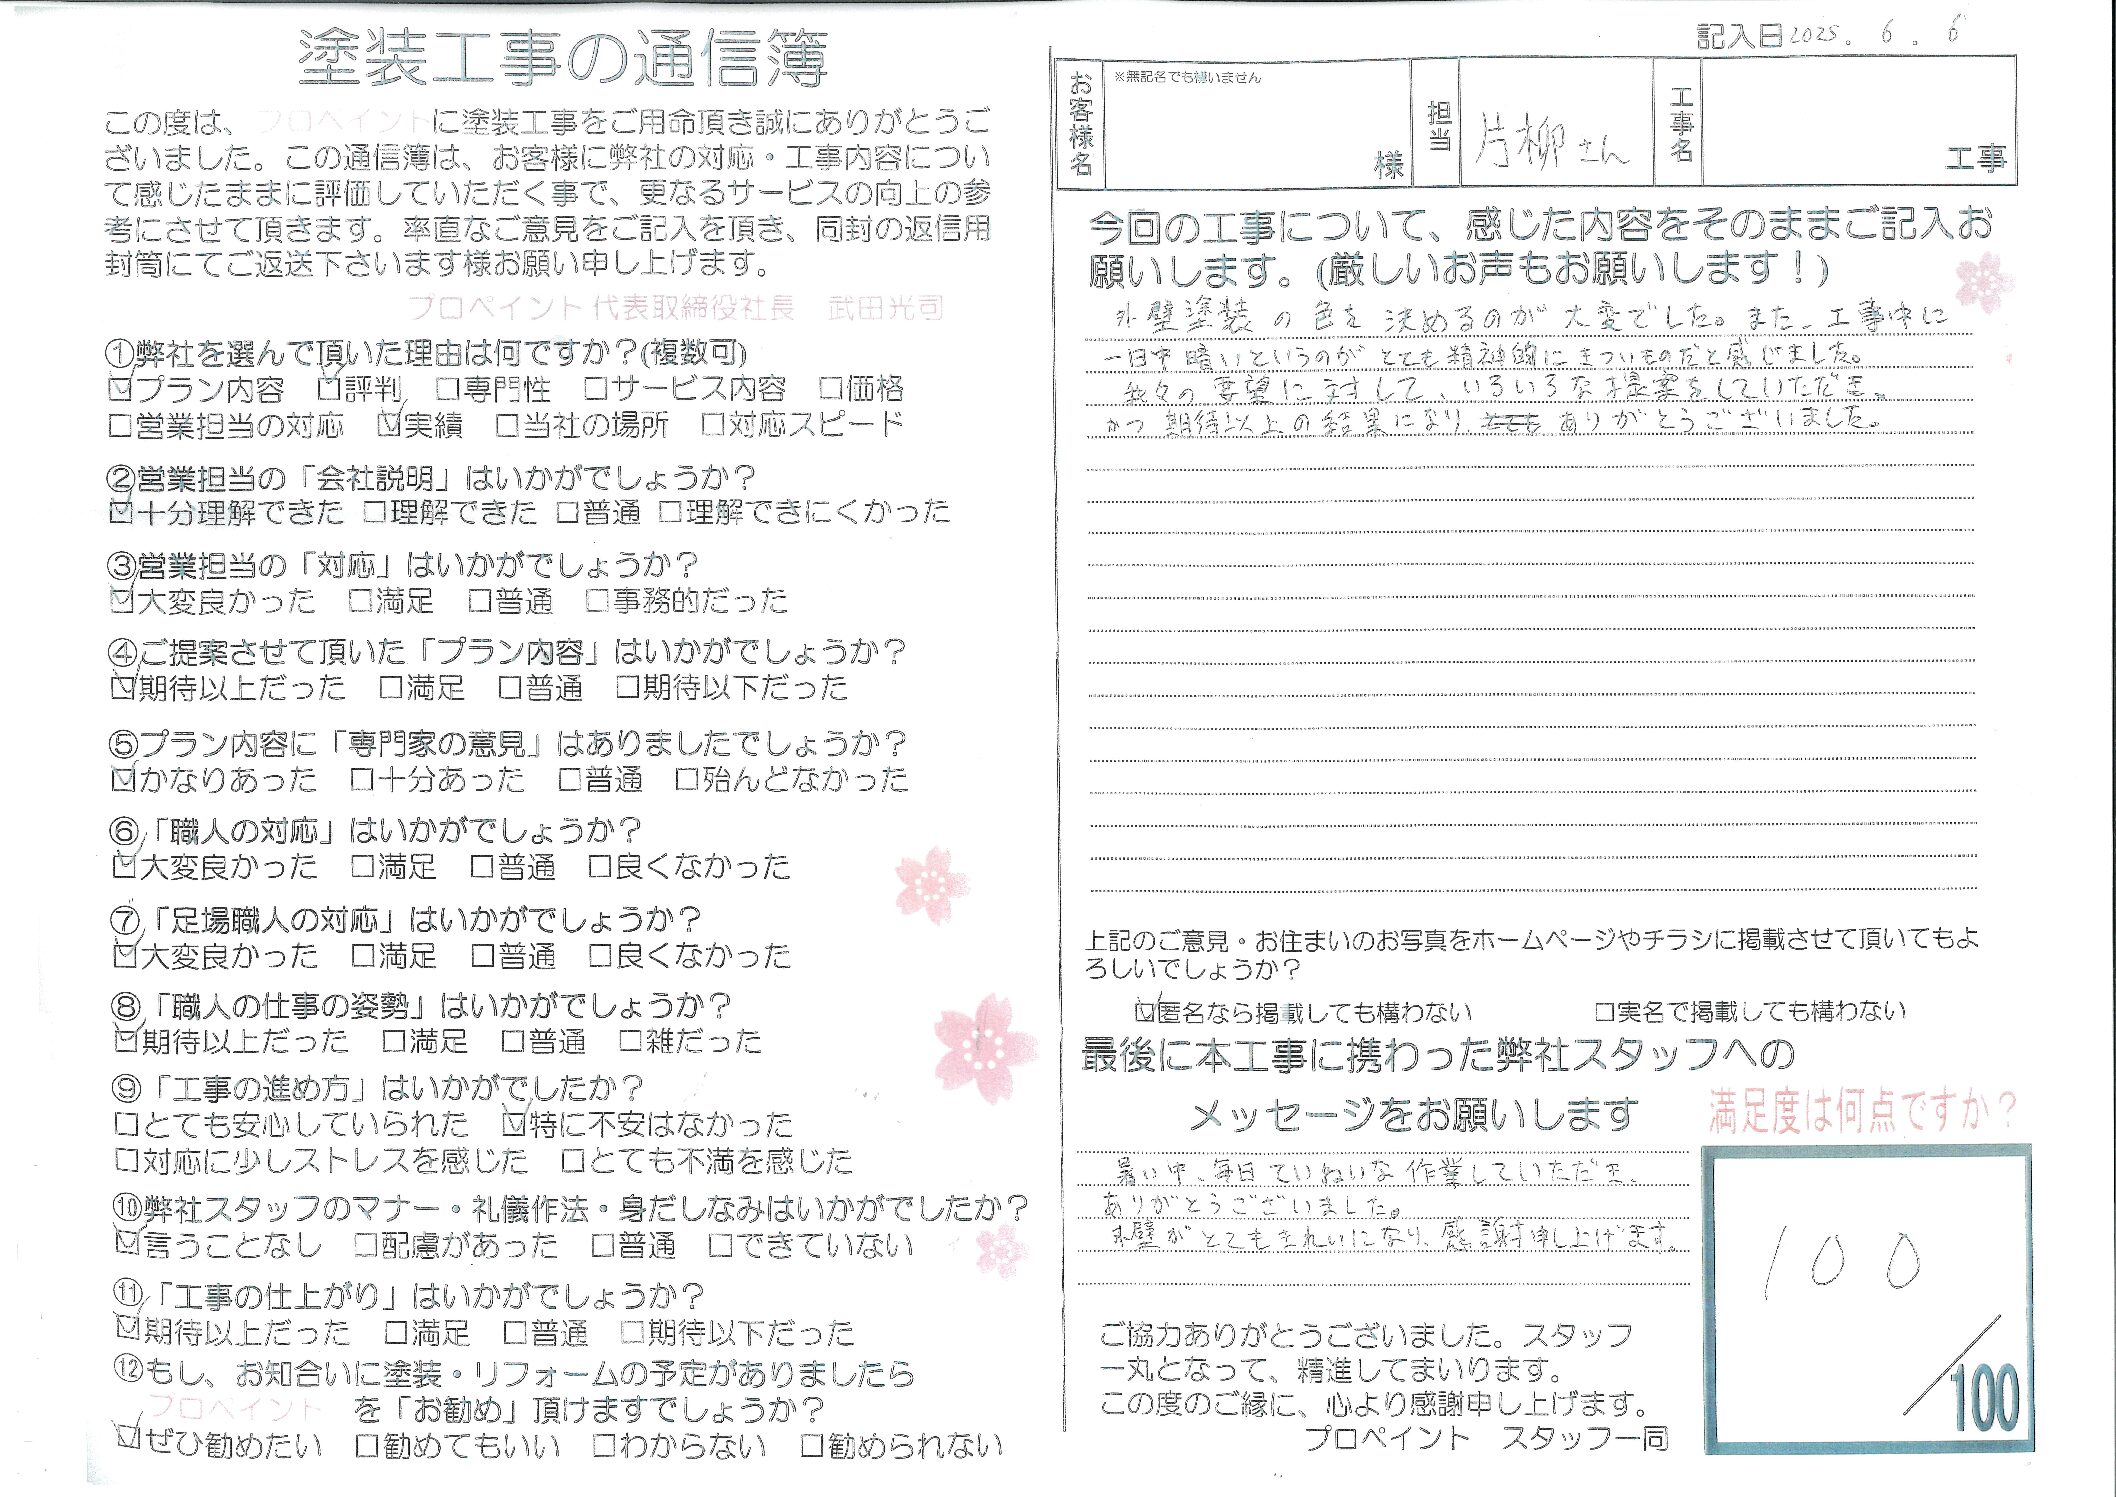 塗装工事の通信簿
この度は、プロペイントに塗装工事をご用命頂き誠にありがとうご
ざいました。この通信簿は、お客様に弊社の対応・工事内容につい
て感じたままに評価していただく事で、更なるサービスの向上の参
考にさせて頂きます。率直なご意見をご記入を頂き、同封の返信用
封筒にてご返送下さいます様お願い申し上げます。
プロペイント 代表取締役社長 武田光司
①弊社を選んで頂いた理由は何ですか？(複数可)
☑プラン内容 ☑評判 □専門性 □サービス内容 □価格
□営業担当の対応 ☑実績 □当社の場所 □対応スピード
②営業担当の「会社説明」はいかがでしょうか？
☑十分理解できた □理解できた □普通 □理解できにくかった
③営業担当の「対応」はいかがでしょうか？
☑大変良かった □満足 □普通 □事務的だった
④ご提案させて頂いた「プラン内容」はいかがでしょうか？
☑期待以上だった □満足 □普通 □期待以下だった
⑤プラン内容に「専門家の意見」はありましたでしょうか？
☑かなりあった □十分あった □普通 □殆んどなかった
⑥「職人の対応」はいかがでしょうか？
☑大変良かった □満足 □普通 □良くなかった
⑦「足場職人の対応」はいかがでしょうか？
☑大変良かった □満足 □普通 □良くなかった
⑧「職人の仕事の姿勢」はいかがでしょうか？
☑期待以上だった □満足 □普通 □雑だった
⑨「工事の進め方」はいかがでしたか？
□とても安心していられた ☑特に不安はなかった
□対応に少しストレスを感じた □とても不満を感じた
⑩弊社スタッフのマナー・礼儀作法・身だしなみはいかがでしたか？
☑言うことなし □配慮があった □普通 □できていない
⑪「工事の仕上がり」はいかがでしょうか？
☑期待以上だった □満足 □普通 □期待以下だった
⑫もし、お知合いに塗装・リフォームの予定がありましたら
プロペイント を「お勧め」頂けますでしょうか？
☑ぜひ勧めたい □勧めてもいい □わからない □勧められない
記入日2025. 6. 6
お客様名 ※無記名でも構いません 様 担当 片柳さん 工事名 工事
今回の工事について、感じた内容をそのままご記入お
願いします。(厳しいお声もお願いします！)
外壁塗装の色を決めるのが大変でした。また、工事中に
一日中暗いというのがとても精神的にきついものだと感じました。
我々の要望に対して、いろいろな提案をしていただき、
かつ期待以上の結果になり、ありがとうございました。
上記のご意見・お住まいのお写真をホームページやチラシに掲載させて頂いてもよ
ろしいでしょうか？
☑匿名なら掲載しても構わない □実名で掲載しても構わない
最後に本工事に携わった弊社スタッフへの
メッセージをお願いします
満足度は何点ですか？
暑い中、毎日ていねいな作業していただき、
ありがとうございました。
外壁がとてもきれいになり、感謝申し上げます。
100
/100
ご協力ありがとうございました。スタッフ
一丸となって、精進してまいります。
この度のご縁に、心より感謝申し上げます。
プロペイント スタッフ一同